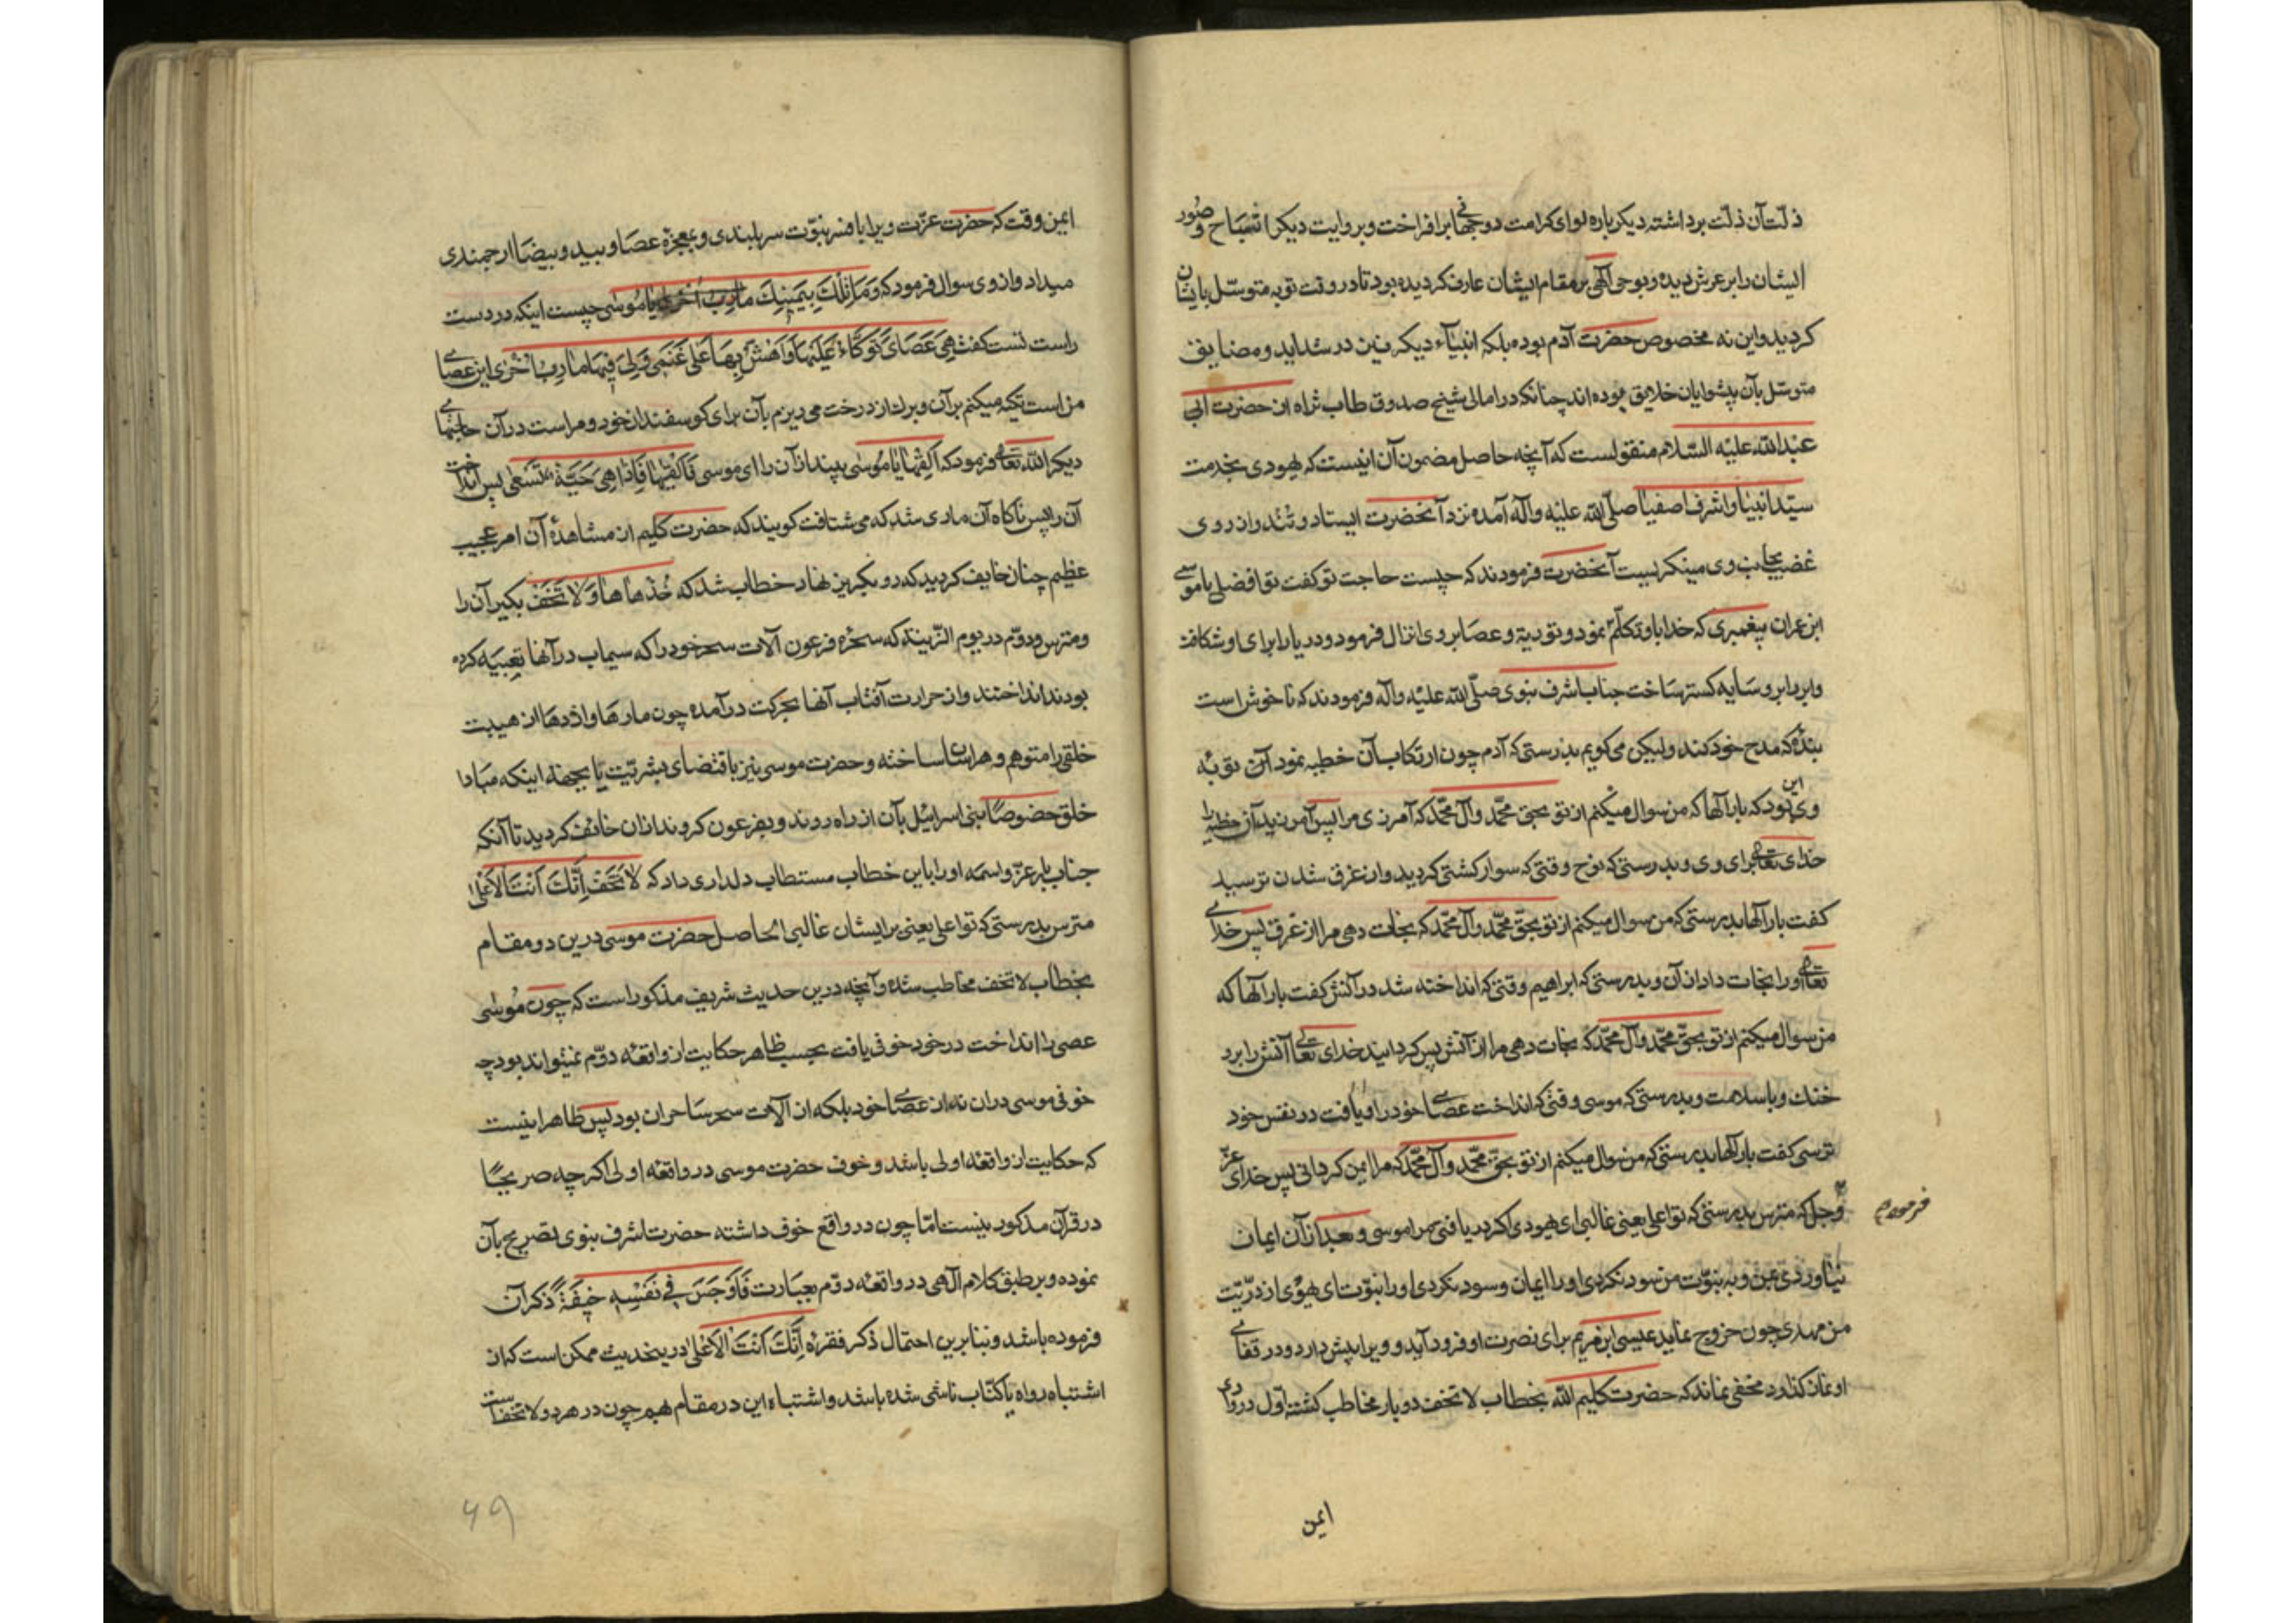 ذلّت آن ذلّت برداشته دیکر باره لوای کرامت دوجهانی برافراخت و بروایت دیکر اشباح و صور
ایشان را بر عرش دیده و بوحی آلهی بر مقام ایشان عارف کردیده بود تا در وقت توبه متوسّل بایشان
کردید و این نه مخصوص حضرت آدم بوده بلکه انبیآء دیکر نیز در شداید و مضایق
متوسّل بآن پیشوایان خلایق بوده اند چنانکه در امالی شیخ صدوق طاب ثراه از حضرت ابی
عبدالله علیه السّلام منقولست که آنچه حاصل مضمون آن اینست که یهودی بخدمت
سیّد انبیا و اشرف اصفیا صلّی الله علیه وآله آمده نزد آنحضرت ایستاد و تند و از روی
غضب بجانب وی مینکریست آنحضرت فرمودند که چیست حاجت تو کفت تو افضلی یا موسی
ابن عمران پیغمبری که خدا باو تکلّم نمود و توریة و عصا بر وی انزال فرمود و دریا را برای او شکافت
و ابر را برو سایه کستر ساخت جناب اشرف نبوی صلّی الله علیه وآله فرمودند که ناخوش است
بنده که مدح خود کند ولیکن می کویم بدرستی که آدم چون ارتکاب آن خطیه نمود آن توبهٔ
وی این بود که بارآلها که من سوال میکنم از تو بحق محمّد وآل محمّد که آمرزی مرا پس آمرزید آن خطیه را
خدای تعالی برای وی و بدرستی که نوح وقتی که سوار کشتی کردید و از غرق شدن ترسید
کفت بارآلها بدرستی که من سوال میکنم از تو بحقّ محمّد وآل محمّد که نجات دهی مرا از غرق پس خدای
تعالی او را نجات داد از آن و بدرستی که ابراهیم وقتی که انداخته شد در آتش کفت بارآلها که
من سوال میکنم از تو بحقّ محمّد وآل محمّد که نجات دهی مرا از آتش پس کردانید خدای تعالی آتش را برد
خنك و با سلامت و بدرستی که موسی وقتی که انداخت عصای خود را و یافت در نفس خود
ترسی کفت بارآلها بدرستی که من سوال میکنم از تو بحقّ محمّد وآل محمّد که مرا ایمن کردانی پس خدای عزّ
وجل که مترس بدرستی که تو اعلی یعنی غالبی ای یهودی اکر در یافتی مرا موسی و بعد از آن ایمان
فرموده
نیاوردی بمن و به نبوّت من سود نکردی او را ایمان و سود نکردی او را نبوّت ای یهودی از ذرّیّت
من مهدی چون خروج نماید عیسی ابن مریم برای نصرت او فرود آید و ویرا پیش دارد و در قفای
او نماز کذارد مخفی نماند که حضرت کلیم الله بخطاب لا تخف دوبار مخاطب کشته اول در وادی
ایمن
ایمن وقت که حضرت عزّت ویرا بافسر نبوّت سربلندی و بمعجزهٔ عصا و بید و بیضا ارجمندی
میداد و از وی سوال فرمود که وَمَا تِلْكَ بِيَمِينِكَ یا مُوسی چیست اینکه در دست
راست تست کفت هِيَ عَصَايَ أَتَوَكَّاءُ عَلَيْهَا وَاَهُشُّ بِهَا عَلَى غَنَمِي وَلِيَ فِيهَا مَآرِبُ اُخْرَى این عصای
من است تکیه میکنم بر آن و برك از درخت می ریزم بآن برای کوسفندان خود و مراست در آن حاجتهای
دیکر الله تعالی فرمود که اَلْقِهَا یا مُوسی بینداز آن را ای موسی فَاَلْقَيهَا فَاِذَا هِيَ حَيَّةٌ تَسْعَى پس انداخت
آن را پس ناکاه آن ماری شد که می شتافت کویند که حضرت کلیم از مشاهدهٔ آن امر عجیب
عظیم چنان خایف کردید که رو بکریز نهاد خطاب شد که خُذْهَا وَلَا تَخَفْ بکیر آن را
و مترس و دوّم در یوم الزّینه که سحرهٔ فرعون آلات سحر خود را که سیماب در آنها تعبیه کرده
بودند انداختند و از حرارت آفتاب آنها بحرکت درآمده چون مارها و اژدها از هیبت
خلقی را متوهم و هراسان ساخته و حضرت موسی نیز باقتضای بشرّیت یا بجهة اینکه مبادا
خلق خصوصًا بنی اسرائیل بآن از راه روند و بفرعون کروند از آن خائف کردید تا آنکه
جناب باری عزّ واسمه او را باین خطاب مستطاب دلداری داد که لَا تَخَفْ اِنَّكَ اَنْتَ الْاَعْلَى
مترس بدرستی که تو اعلی یعنی بر ایشان غالبی الحاصل حضرت موسی درین دو مقام
بخطاب لا تخف مخاطب شده و آنچه درین حدیث شریف مذکور است که چون مُوسی
عصی را انداخت در خود خوفی یافت بحسب ظاهر حکایت از واقعهٔ دوّم نمیتواند بود چه
خوفی موسی در آن نه از عصای خود بلکه از آلات سحر ساحران بود پس ظاهرا نیست
که حکایت از واقعهٔ اولی باشد و خوف حضرت موسی در واقعهٔ اولی اکرچه صریحًا
در قرآن مذکور نیست امّا چون در واقع خوف داشته حضرت اشرف نبوی تصریح بآن
نموده و بر طبق کلام آلهی در واقعهٔ دوّم بعبارت فَاَوْجَسَ فِي نَفْسِهِ خِيفَةً ذکر آن
فرموده باشد و بنا برین احتمال ذکر فقرهٔ اِنَّكَ اَنْتَ الْاَعْلَى درینحدیث ممکن است که از
اشتباه رواه یا کتّاب ناشی شده باشد و اشتباه این در مقام بهم چون در هر دو لا تخف است
۴۹